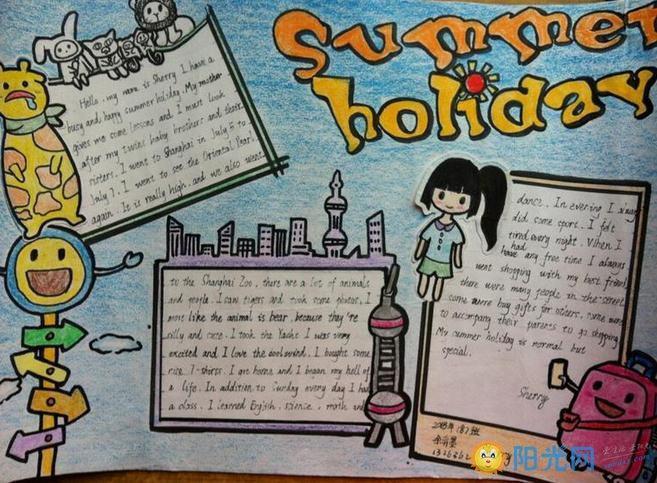 Summer
holiday
Hello, my name is Sherry. I have a
busy and happy summer holiday. My mother
gives me some lessons and I must look
after my twins baby brothers and their
sisters. I went to Shanghai in July 5 to
July 7. I went to see the Oriental Pearl
again. It is really high. and we also went
to the Shanghai Zoo, there are a lot of animals
and people. I saw tigers and took some photos. I
most like the animal is bear, because they're
silly and cute. I took the Yacht I was very
excited and I love the cool wind. I bought some
nice T-shirts. I got home and I began my hell of
a life. In addition to Sunday every day I had
a class. I learned English, science, math and
dance. In evering I always
did some sport. I felt
tired every night. When I
had
have any free time I always
went shopping with my best friend
there were many people in the street
some were buy gifts for others, some were
to accompany their parents to go shopping
My summer holiday is normal but
special.
Sherry
阳光网